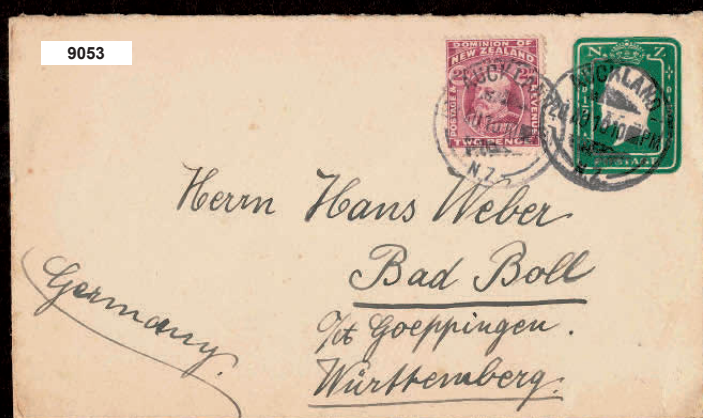 9053
DOMINION OF
NEW ZEALAND
POSTAGE & REVENUE
TWO PENCE
N. Z.
POSTAGE
AUCKLAND
N.Z.
AUCKLAND
PM
N.Z.
Herrn Hans Weber
Bad Boll
Goeppingen.
Württemberg.
Germany.